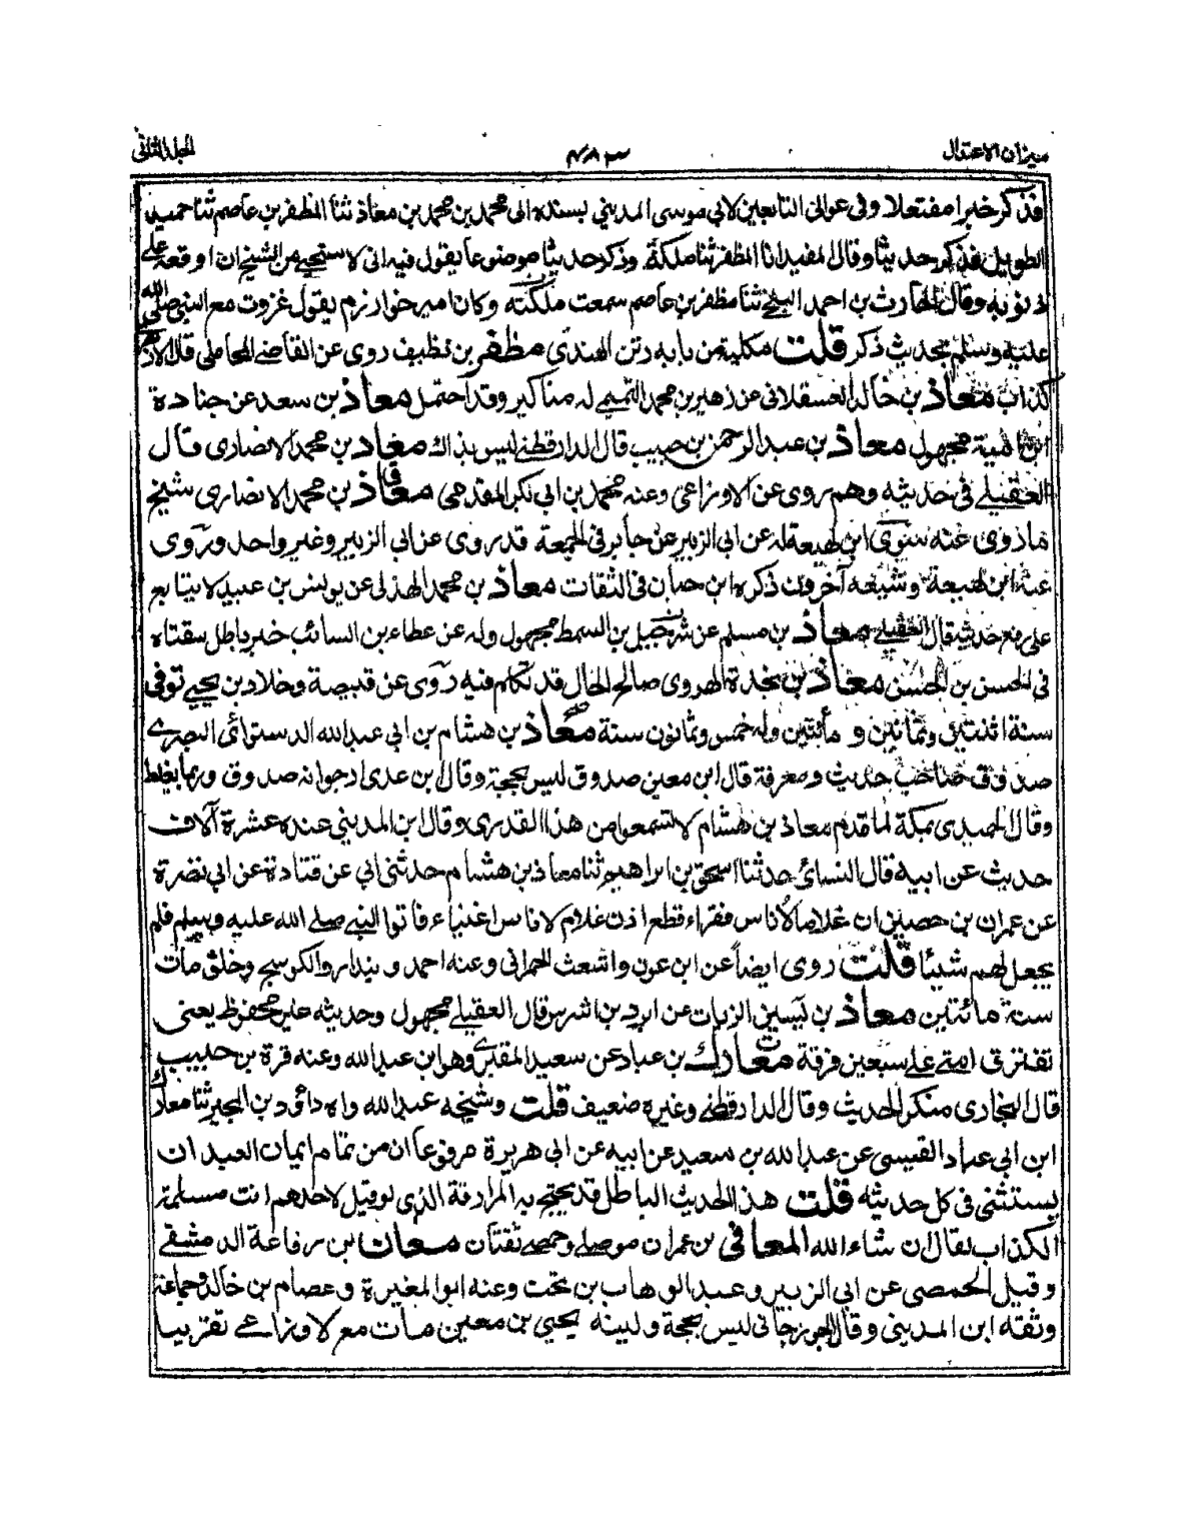 ميزان الاعتدال
٤٨٣
المجلد الثانى
فذكر خبرا مفتعلا وفى عوالى التابعين لابي موسى المديني بسنده الى محمد بن محمد بن معاذ ثنا المظفر بن عاصم ثنا حميد
الطويل فذكر حديثا وقال المفيد انا المظفر ثنا ملكة وذكر حديثا موضوعا يقول فيه انى لاستحيى من الشيخ ان اوقعه على
ذنوبه وقال الحارث بن احمد البلخى ثنا مظفر بن عاصم سمعت ملكته وكان امير خوارزم يقول غزوت مع النبي صلى الله
عليه وسلم بحديث ذكر قلت مكلبة من بابه رتن الهندى مظفر بن نظيف روى عن القاضى المحاملى قال الازهرى
كذاب معاذ بن خالد العسقلانى عن زهير بن محمد التميمى له مناكير وقد احتمل معاذ بن سعد عن جنادة
ابن ابي امية مجهول معاذ بن عبد الرحمن بن حبيب قال الدارقطنى ليس بذاك معاذ بن محمد الانصارى قال
العقيلى فى حديثه وهم روى عن الاوزاعى وعنه محمد بن ابى بكر المقدمى معاذ بن محمد الانصارى شيخ
ما روى عنه سوى ابن لهيعة له عن ابى الزبير عن جابر فى الجمعة قد روى عن ابى الزبير وغير واحد وروى
عنه ابن لهيعة وآخرون ذكره ابن حبان فى الثقات معاذ بن محمد الهذلى عن يونس بن عبيد لا يتابع
على رفع حديثه قال العقيلى معاذ بن مسلم عن شرحبيل بن السمط مجهول وله عن عطاء بن السائب خبر باطل سقناه
فى الحسن بن الحسين معاذ بن نجدة الهروى صالح الحال قد تكلم فيه روى عن قبيصة وخلاد بن يحيى توفى
سنة اثنتين وثمانين و مأتين وله خمس وثمانون سنة معاذ بن هشام بن ابي عبد الله الدستوائى البصرى
صدوق صاحب حديث ومعرفة قال ابن معين صدوق ليس بحجة وقال ابن عدى ارجو انه صدوق وربما يغلط
وقال الحميدى بمكة لما قدم معاذ بن هشام لا تسمعوا من هذا القدرى وقال ابن المديني عنده عشرة آلاف
حديث عن ابيه قال النسائى حدثنا اسحق بن ابراهيم ثنا معاذ بن هشام حدثنى ابى عن قتادة عن ابى نضرة
عن عمران بن حصين ان غلاما لاناس فقراء قطع اذن غلام لاناس اغنياء فاتوا النبى صلى الله عليه وسلم فلم
يجعل لهم شيئا قلت روى ايضاً عن ابن عون واشعث الحمرانى وعنه احمد وبندار والكوسج وخلق مات
سنة مائتين معاذ بن يسين الزيات عن ابرد بن اشرس قال العقيلى مجهول وحديثه غير محفوظ يعنى
تفترق امتى على سبعين فرقة معارك بن عباد عن سعيد المقبرى وهو ابن عبد الله وعنه قرة بن حبيب
قال البخارى منكر الحديث وقال الدارقطنى وغيره ضعيف قلت وشيخه عبد الله واه داؤد بن المحبر ثنا معارك
ابن ابى عباد القيسى عن عبد الله بن سعيد عن ابيه عن ابى هريرة مرفوعا ان من تمام ايمان العبد ان
يستثنى فى كل حديثه قلت هذا الحديث الباطل قد يحتج به المرازقة الذى لو قيل لاحدهم انت مسيلمة
الكذاب لقال ان شاء الله المعافى بن عمران موصلى وحمصى ثقتان معان بن رفاعة الدمشقى
وقيل الحمصى عن ابى الزبير وعبد الوهاب بن بخت وعنه ابو المغيرة وعصام بن خالد وجماعة
وثقه ابن المديني وقال الجوزجانى ليس بحجة ولينه يحيى بن معين مات مع الاوزاعى تقريبا